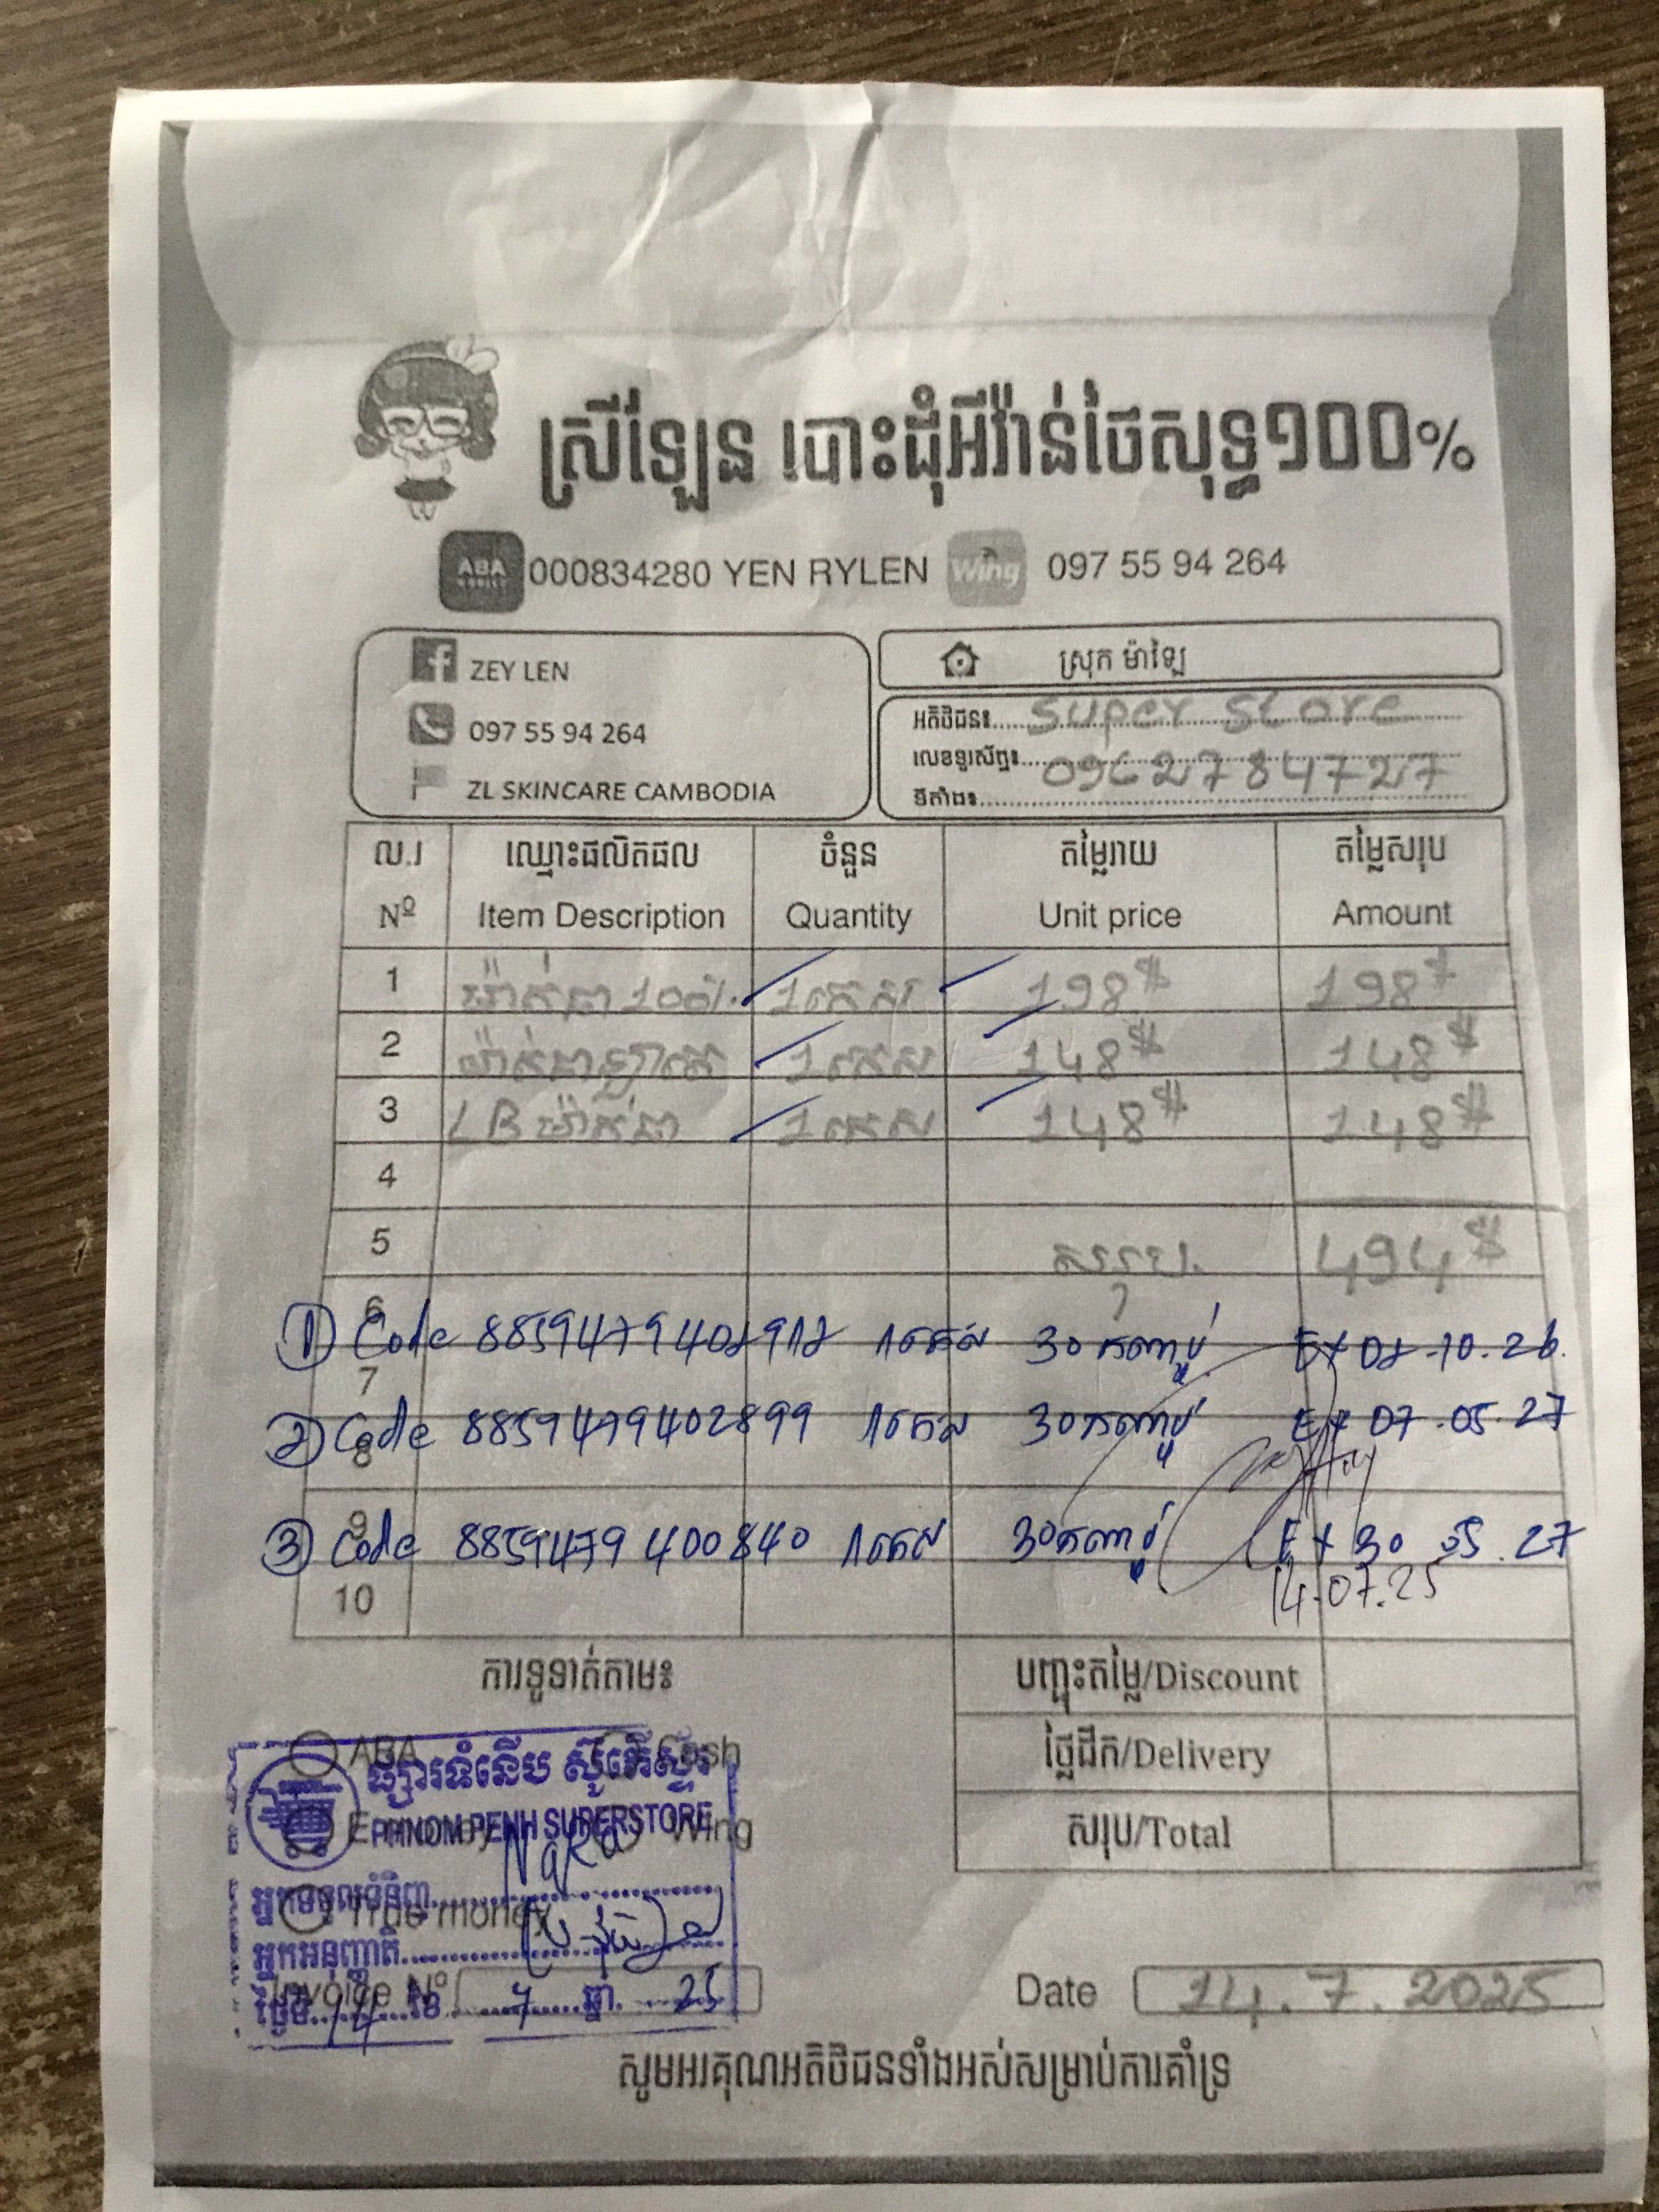 ស្រីឡែន បោះដុំអីវ៉ាន់ថៃសុទ្ធ១០០%
ABA 000834280 YEN RYLEN Wing 097 55 94 264
ZEY LEN
097 55 94 264
ZL SKINCARE CAMBODIA
ស្រុក ម៉ាឡៃ
អតិថិជន៖ Super Store
លេខទូរស័ព្ទ៖ 0962784727
ទីតាំង៖
ល.រ ឈ្មោះផលិតផល ចំនួន តម្លៃរាយ តម្លៃសរុប
Nº Item Description Quantity Unit price Amount
1 ម៉ាក់ជា 100%. 1កេស 198$ 198$
2 ម៉ាក់ជា 1កេស 148$ 148$
3 LB ម៉ាក់ជា 1កេស 148$ 148$
4
5 សរុប. 494$
6
① Code 1កេស 30កញ្ចប់ Ex 10.26.
7
② Code 8859479402899 1កេស 30កញ្ចប់ Ex 07.05.27
8
9
③ Code 8859479400840 1កេស 30កញ្ចប់ Ex 30 05.27
14.07.25
10
ការទូទាត់តាម៖
បញ្ចុះតម្លៃ/Discount
ថ្លៃដឹក/Delivery
សរុប/Total
ABA Cash
E-money Wing
True money
ផ្សារទំនើប ស៊ូភើស្ទ័រ
PHNOM PENH SUPERSTORE
អ្នកទទួលទំនិញ
អ្នកអនុញ្ញាតិ
ថ្ងៃទី 14 ខែ 7 ឆ្នាំ 25
Invoice Nº
Date 14.7.2025
សូមអរគុណអតិថិជនទាំងអស់សម្រាប់ការគាំទ្រ